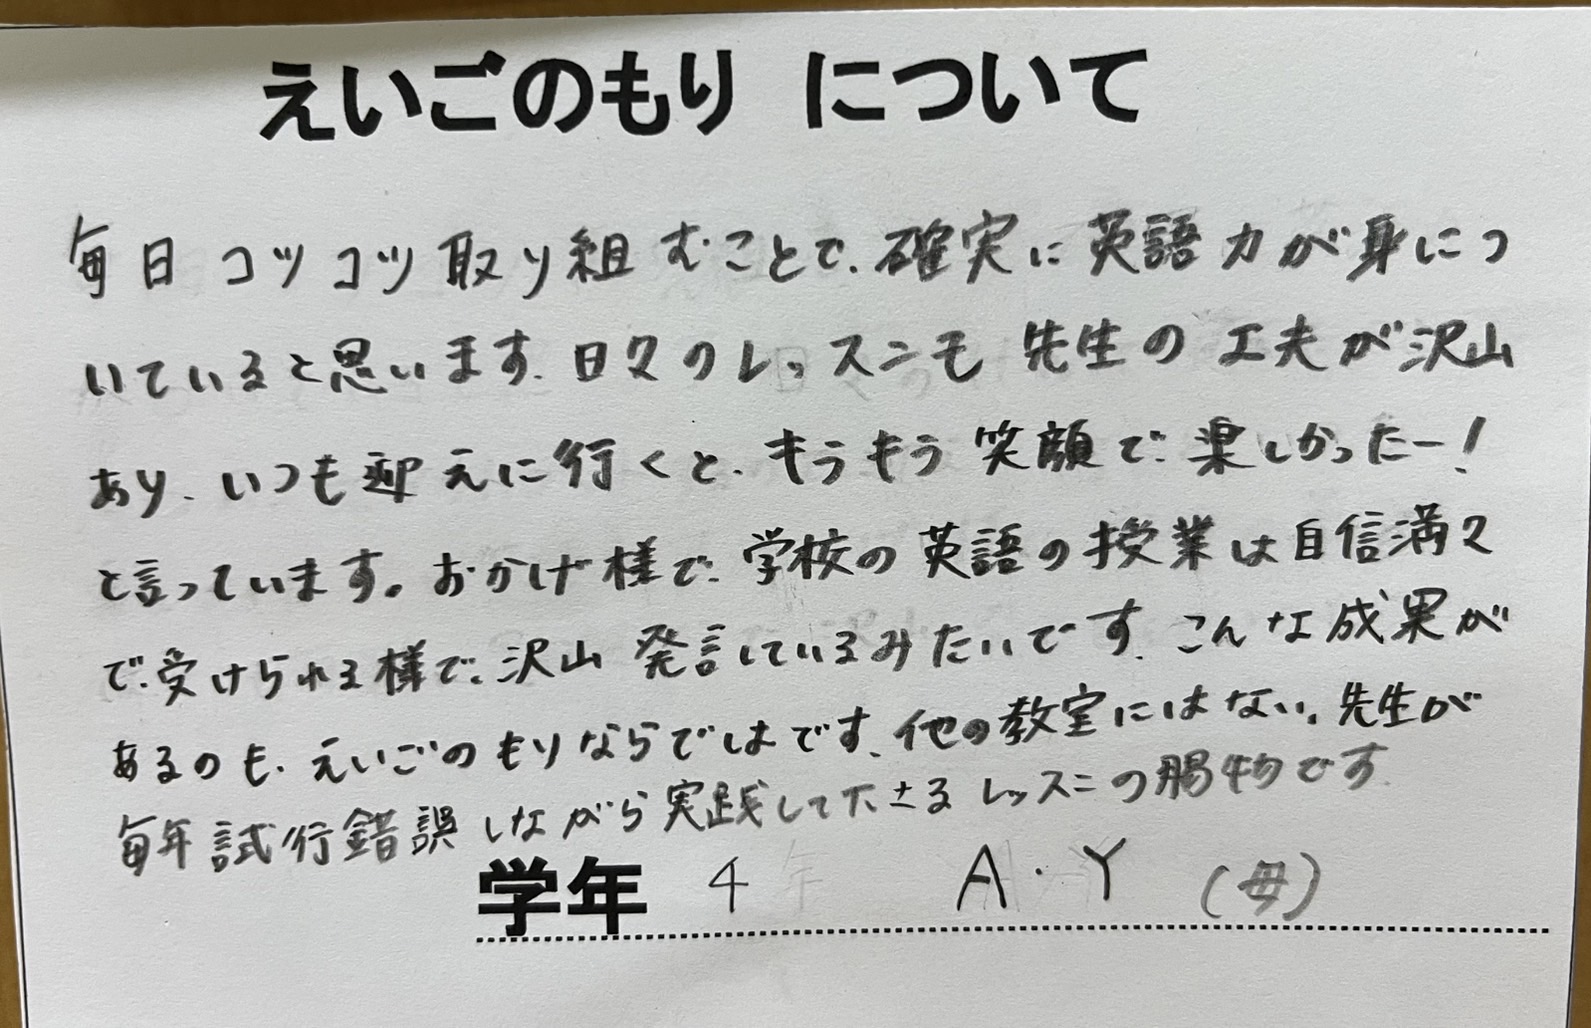 えいごのもり について
毎日コツコツ取り組むことで、確実に英語力が身につ
いていると思います。日々のレッスンも先生の工夫が沢山
あり、いつも迎えに行くと、キラキラ笑顔で、楽しかったー!
と言っています。おかげ様で、学校の英語の授業は自信満々
で受けられる様で、沢山発言しているみたいです。こんな成果が
あるのも、えいごのもりならではです。他の教室にはない、先生が
毎年試行錯誤しながら実践して下さるレッスンの賜物です。
学年 4 A・Y (母)